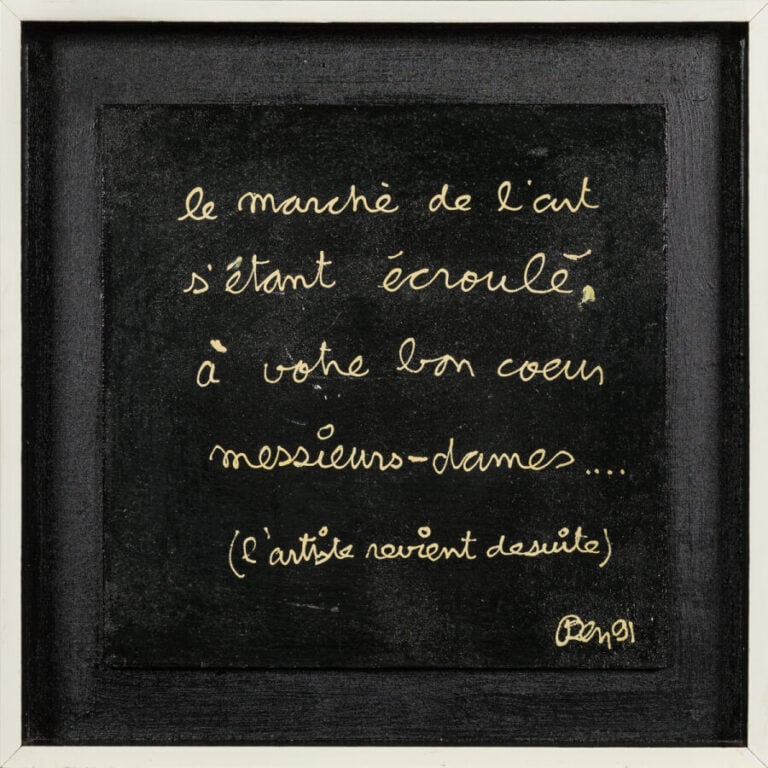 le marchè de l'art
s'étant écroulé,
à votre bon coeur
messieurs-dames....
(l'artiste revient desuite)
Ben 91